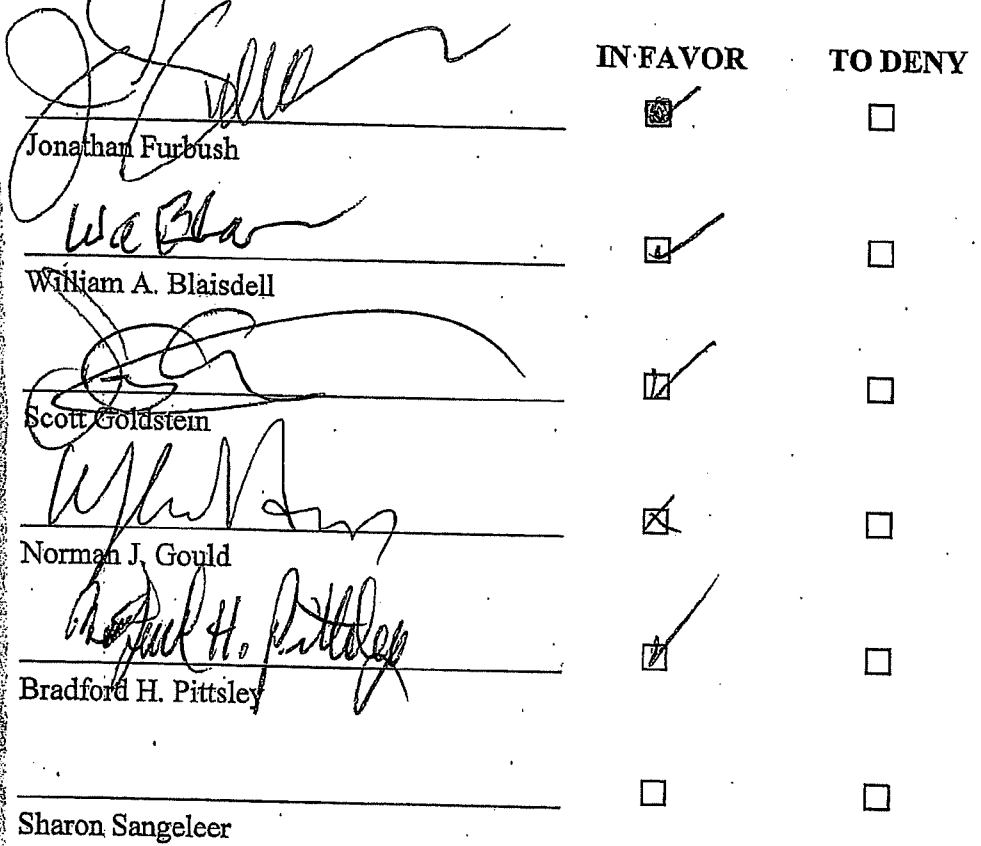 IN FAVOR TO DENY
Jonathan Furbush
William A. Blaisdell
Scott Goldstein
Norman J. Gould
H. Pittsley
Bradford H. Pittsley
Sharon Sangeleer